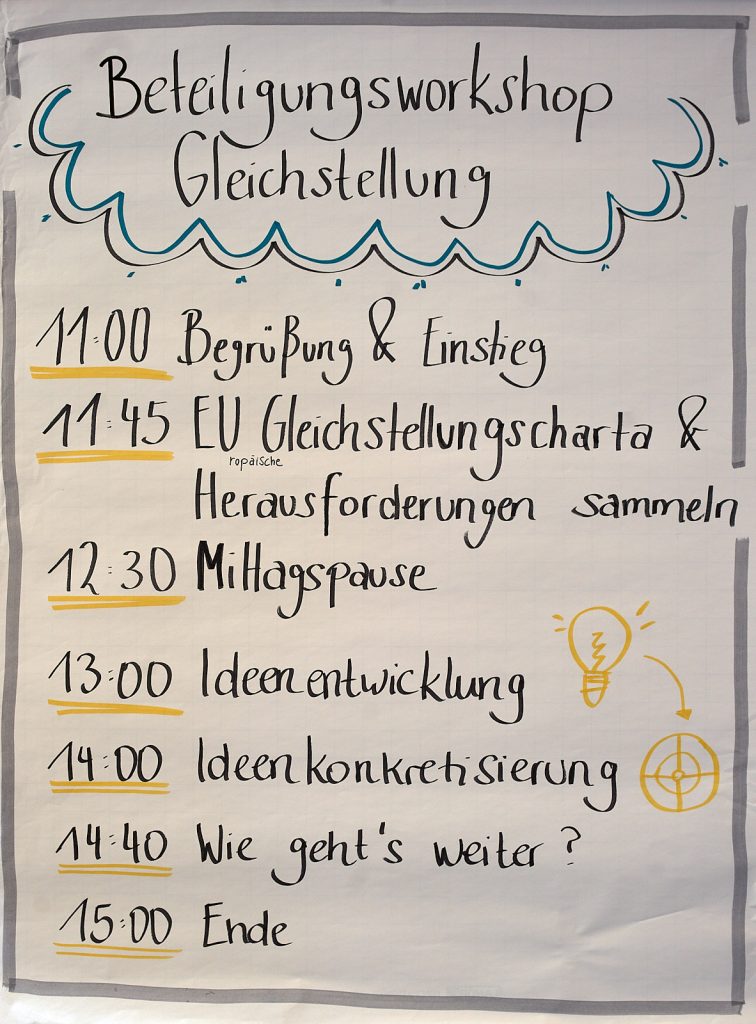 Beteiligungsworkshop
Gleichstellung
11:00 Begrüßung & Einstieg
11:45 EU Gleichstellungscharta &
ropäische
Herausforderungen sammeln
12:30 Mittagspause
13:00 Ideenentwicklung
14:00 Ideenkonkretisierung
14:40 Wie geht's weiter?
15:00 Ende